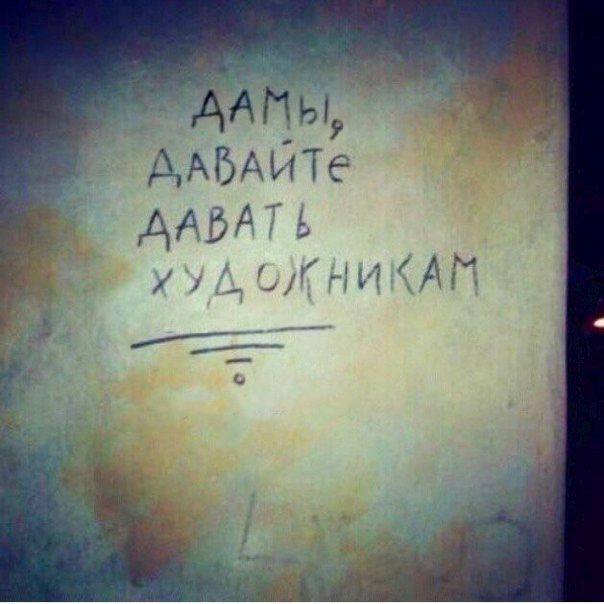 ДАМЫ,
ДАВАЙТе
ДАВАТЬ
ХУДОЖНИКАМ